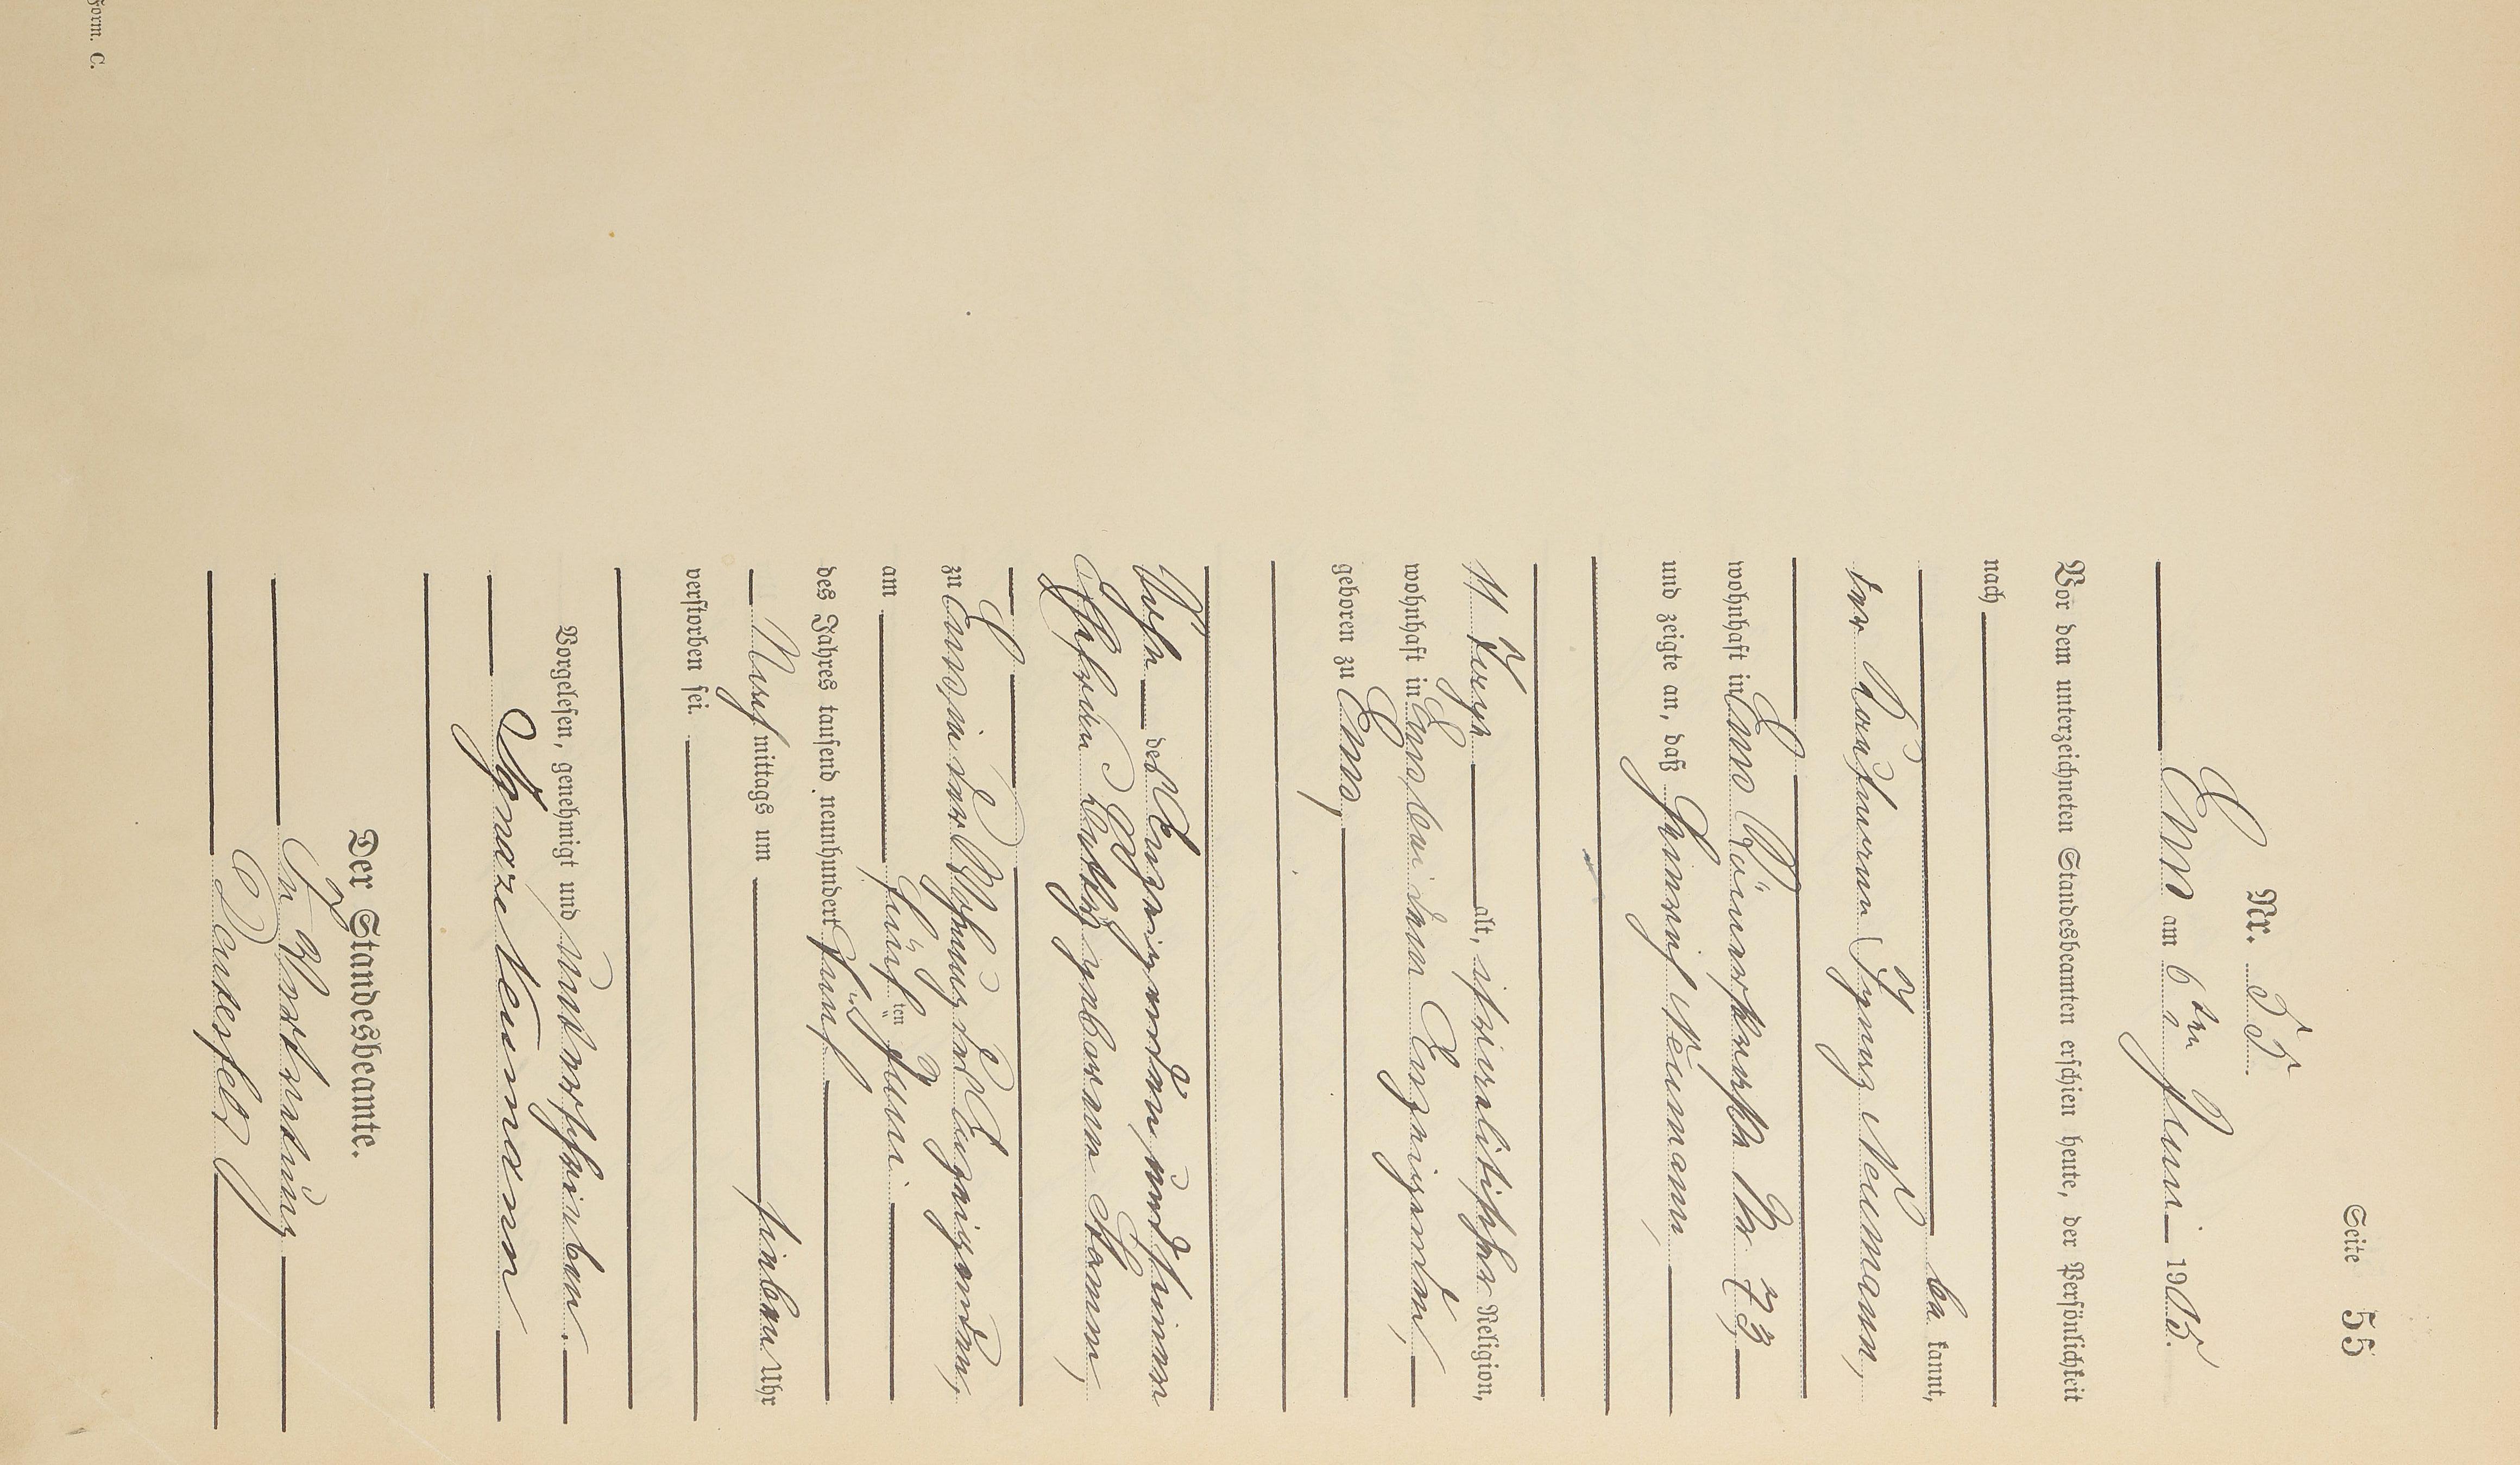 Seite 55
Nr. 55
Ems am 6ten Juni 1905.
Vor dem unterzeichneten Standesbeamten erschien heute, der Persönlichkeit
nach
be kannt,
der Kaufmann Ignaz Neumann,
wohnhaft in Ems Römerstraße No 73,
und zeigte an, daß Heinrich Neumann,
11 Tage alt, israelitischer Religion,
wohnhaft in Ems bei dem Anzeigenden,
geboren zu Ems,
Sohn des Anzeigenden, und seiner
Ehefrau geborenen Stamm,
zu Ems, in der Wohnung des Anzeigenden,
am fünf ten Juni
des Jahres tausend neunhundert fünf
Nach mittags um sieben Uhr
verstorben sei.
Vorgelesen, genehmigt und unterschrieben.
Ignaz Neumann
Der Standesbeamte.
In Vertretung
Form. C.